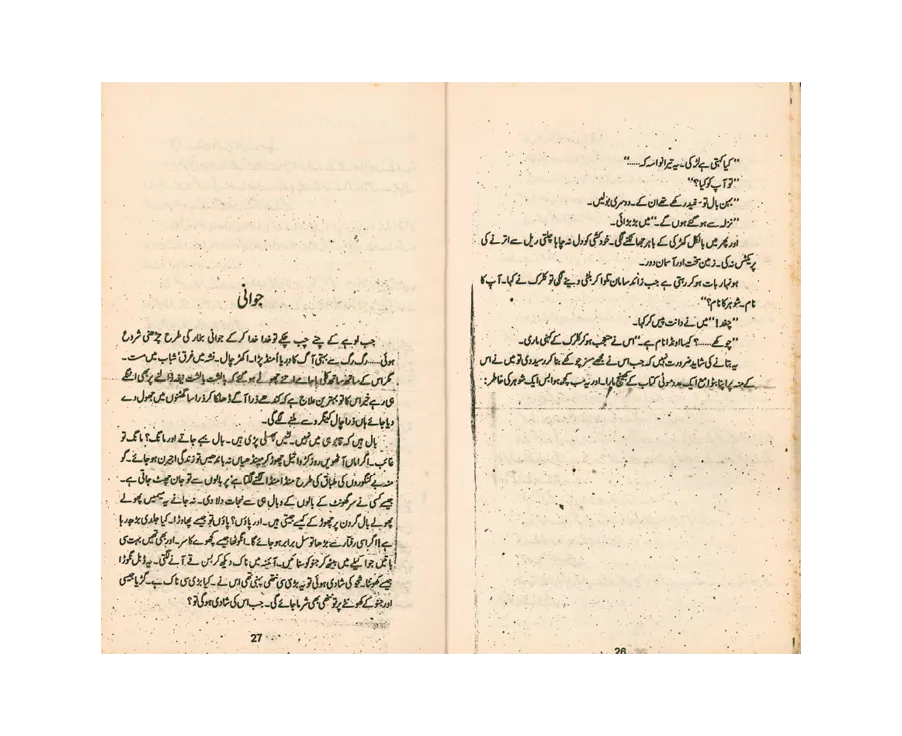 ”کیا کہتی ہے لڑکی۔ یہ تیرا نواسہ کہ......“
”تو آپ کو کیا؟“
”بہن بال تو۔ قید رکھے تھے ان کے۔ دوسری بولیں۔
”نزلہ سے ہو گئے ہوں گے۔“ میں بڑبڑائی۔
اور پھر میں بالکل کھڑکی کے باہر جھانکنے لگی۔ خودکشی کو دل نہ چاہا چلتی ریل سے اترنے کی
پریکٹس نہ کی۔ زمین سخت اور آسمان دور۔
ہونہار بات ہو کر رہتی ہے جب زائد سامان تلوا کر بلٹی دینے لگی تو کلرک نے کہا۔ آپ کا
نام۔ شوہر کا نام؟“
”چغد!“ میں نے دانت پیس کر کہا۔
”چوکھے......؟ کیسا اوڈا نام ہے۔“ اس نے متعجب ہو کر کلرک کے کہنی ماری۔
یہ بتانے کی شاید ضرورت نہیں کہ جب اس نے مجھے مسز چوکھے بنا کر رسید دی تو میں نے اس
کے منہ پر اپنا بٹوا مع ایک عدد موٹی کتاب کے کھینچ مارا۔ اور یہ سب کچھ ہوا بس ایک شوہر کی خاطر:
26
جوانی
جب لوہے کے چنے چب چکے تو خدا خدا کر کے جوانی بخار کی طرح چڑھنی شروع
ہوئی...... رگ رگ سے بہتی آگ کا دریا اُمنڈ پڑا۔ الھڑ چال۔ نشہ میں غرق شباب میں مست۔
مگر اس کے ساتھ ساتھ کل پاجامے اتنے چھوٹے ہو گئے کہ بالشت بالشت نیفہ ڈالنے پر بھی اٹنگے
ہی رہے خیر اس کا تو بہترین علاج ہے کہ کندھے ذرا آگے ڈھلکا کر ذرا سا گھٹنوں میں جھول دے
دیا جائے ہاں ذرا چال کینگرو سے ملنے لگے گی۔
بال ہیں کہ قابو ہی میں نہیں۔ لٹیں پھسلی پڑی ہیں۔ بال بہے جاتے اور مانگ؟ مانگ تو
غائب۔ اگر اماں آٹھویں روز کڑوا تیل چھوڑ کر مینڈھیاں نہ باندھیں تو زندگی اجیرن ہو جائے۔ گو
منہ بے کنگوروں کی طباق کی طرح منڈا منڈا لگنے لگتا ہے پر بالوں سے تو جان چھٹ جاتی ہے۔
جیسے کسی نے سر گھونٹ کے بالوں کے وبال ہی سے نجات دلا دی۔ نہ جانے یہ میمیں پھولے
پھولے بال گردن پر چھوڑ کے کیسے جیتی ہیں۔ اور پاؤں؟ پاؤں تو جیسے پھاوڑا۔ کیا جلدی بڑھ رہا
ہے! اگر اسی رفتار سے بڑھا تو سل برابر ہو جائے گا۔ انگوٹھا جیسے کچھوے کا سر۔ اور بھی تھیں بہت سی
باتیں جو اکیلے میں بیٹھ کر جنو کو ستاتیں۔ آئینہ میں ناک دیکھ کر بس قے آنے لگتی۔ یہ ڈبل نگوڑا
جیسے کھونٹا۔ فجو کی شادی ہوئی تو یہ بڑی سی نتھنی پہنی تھی اس نے۔ کیا بڑی سی ناک ہے۔ گڑیا جیسی
اور جنو کے کھونٹے پر تو نتھنی بھی شرما جائے گی۔ جب اس کی شادی ہو گی تو؟
27